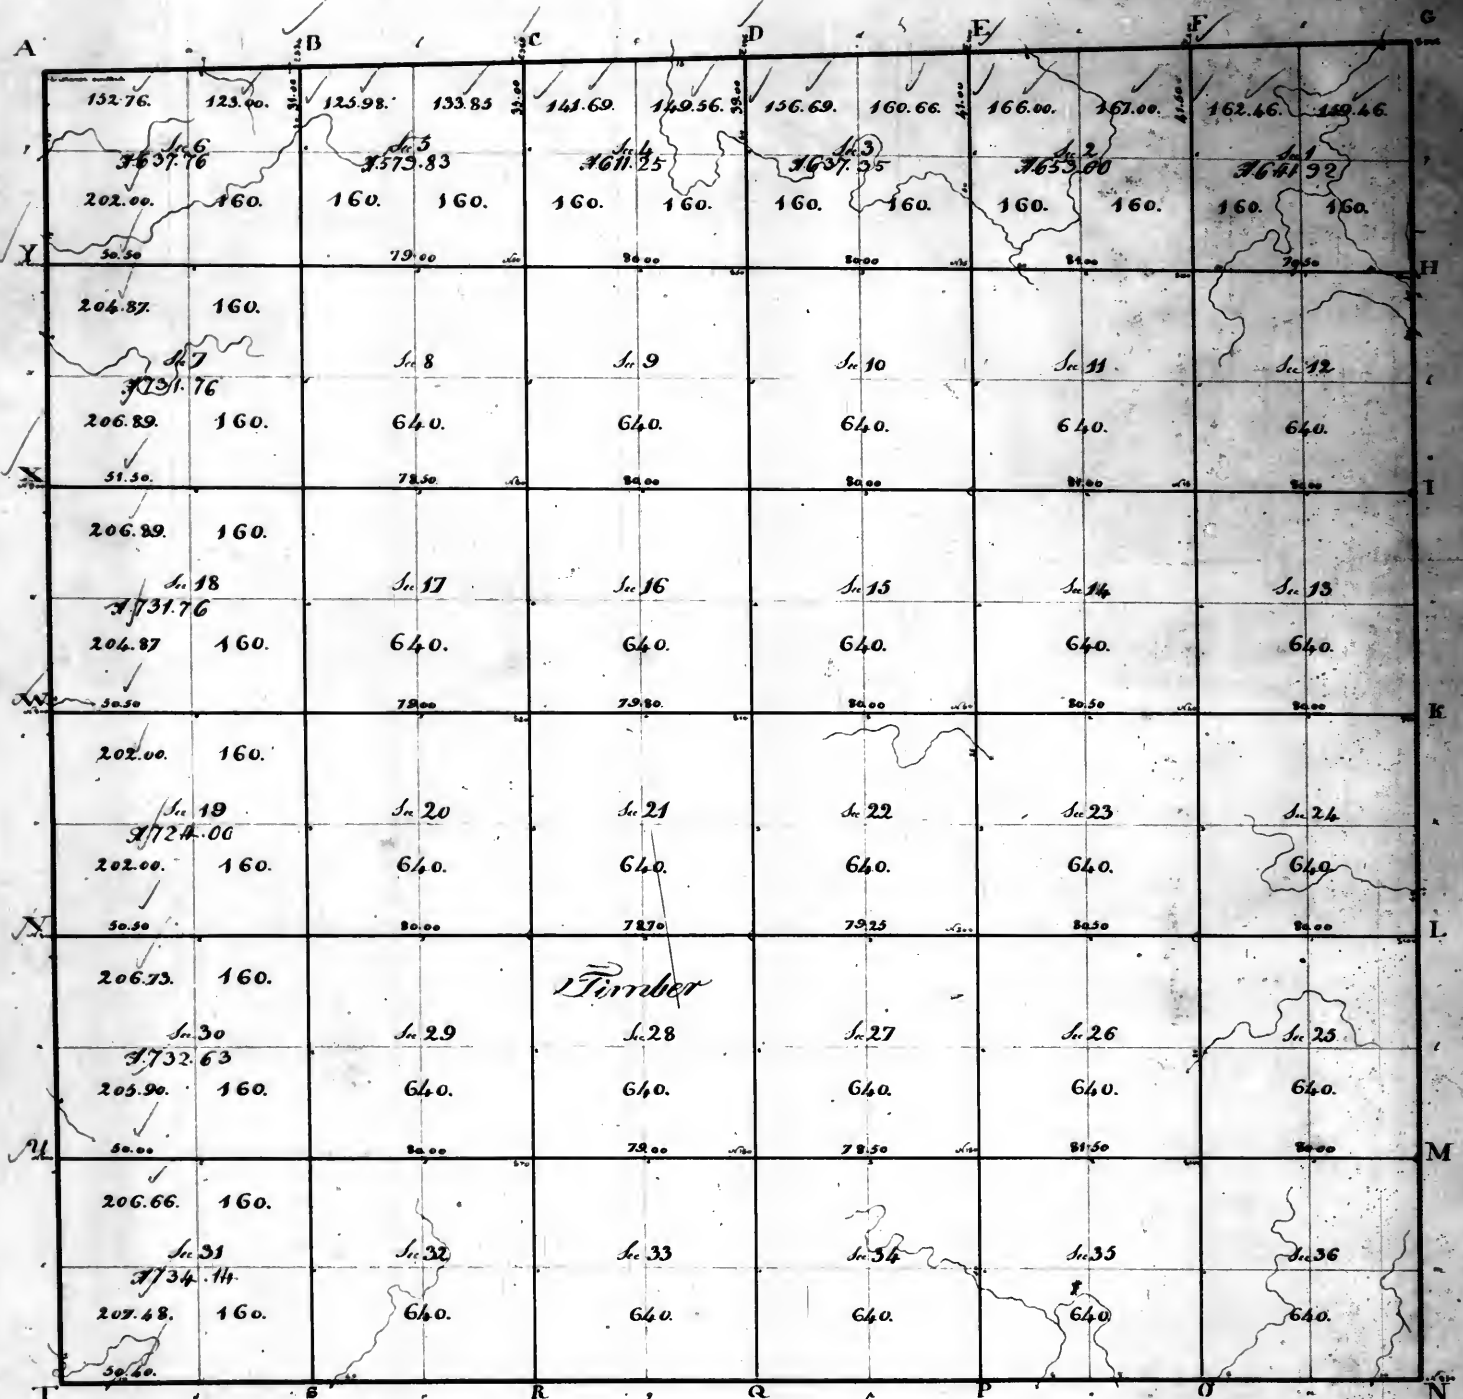 A B C D E F G
31.00 39.00 39.00 41.00 41.50
152.76. 123.00. 125.98. 133.85 141.69. 149.56. 156.69. 160.66. 166.00. 167.00. 162.46. 159.46.
Sec 6 Sec 5 Sec 4 Sec 3 Sec 2 Sec 1
A 637.76 A 573.83 A 611.25 A 637.35 A 653.00 A 641.92
202.00. 160. 160. 160. 160. 160. 160. 160. 160. 160. 160. 160.
Y 50.50 79.00 80.00 80.00 81.00 79.50 H
204.87. 160.
Sec 7 Sec 8 Sec 9 Sec 10 Sec 11 Sec 12
A 731.76
206.89. 160. 640. 640. 640. 640. 640.
X 51.50. 78.50. 80.00 80.00 81.00 80.00 I
206.89. 160.
Sec 18 Sec 17 Sec 16 Sec 15 Sec 14 Sec 13
A 731.76
204.87 160. 640. 640. 640. 640. 640.
W 50.50 79.00 79.80. 80.00 80.50 80.00 K
202.00. 160.
Sec 19 Sec 20 Sec 21 Sec 22 Sec 23 Sec 24
A 724.00
202.00. 160. 640. 640. 640. 640. 640.
50.50 80.00 78.70 79.25 80.50 80.00 L
206.73. 160.
Timber
Sec 30 Sec 29 Sec 28 Sec 27 Sec 26 Sec 25
A 732.63
205.90. 160. 640. 640. 640. 640. 640.
U 50.00 80.00 79.00 78.50 81.50 80.00 M
206.66. 160.
Sec 31 Sec 32 Sec 33 Sec 34 Sec 35 Sec 36
A 734.14
207.48. 160. 640. 640. 640. 640. 640.
50.60.
T S R Q P O N